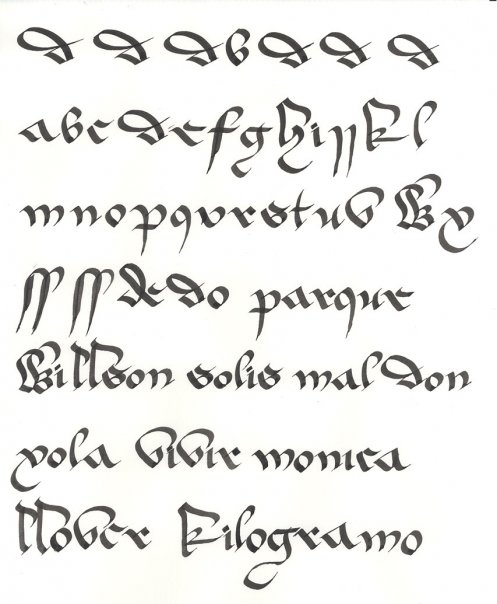 d d d b d d d
a b c d e f g h i j j k l
m n o p q v r s t u v w x y
ss ss & do parque
Willson solis maldon
yola vivir monica
llover kilogramo